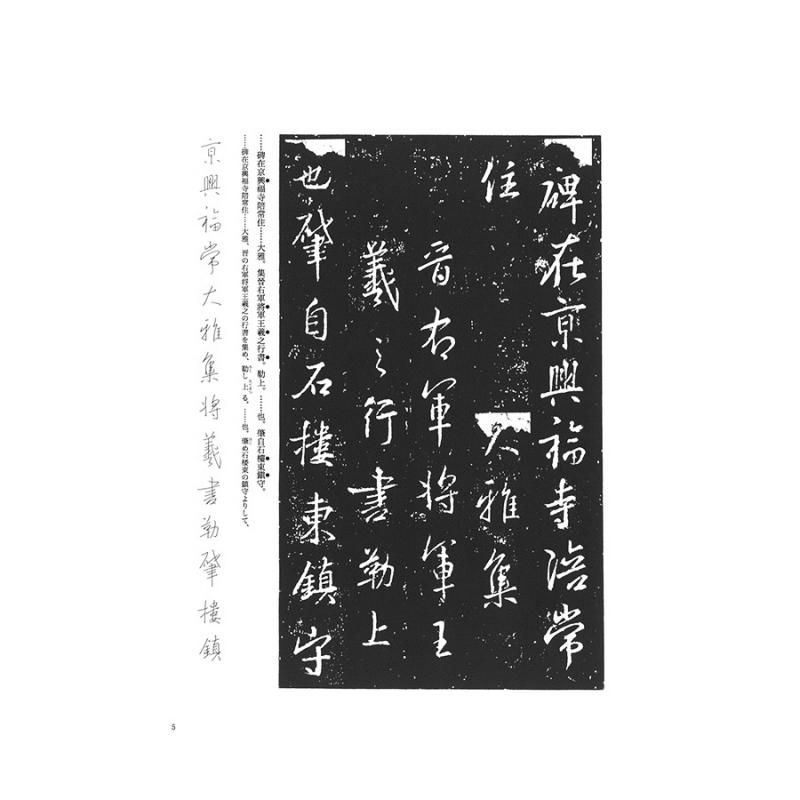 碑在京興福寺陪常
住　大雅集
晋右軍将軍王
羲之行書勒上
也肇自石樓東鎮守
……碑在京興福寺陪常住……大雅。集晉右軍將軍王羲之行書。勒上。……也。肇自石樓東鎮守。
……碑在京興福寺陪常住……大雅、晋の右軍将軍王羲之の行書を集め、勒し上る。……也。肇め石楼東の鎮守よりして、
京興福常大雅集将羲書勒肇樓鎮
5